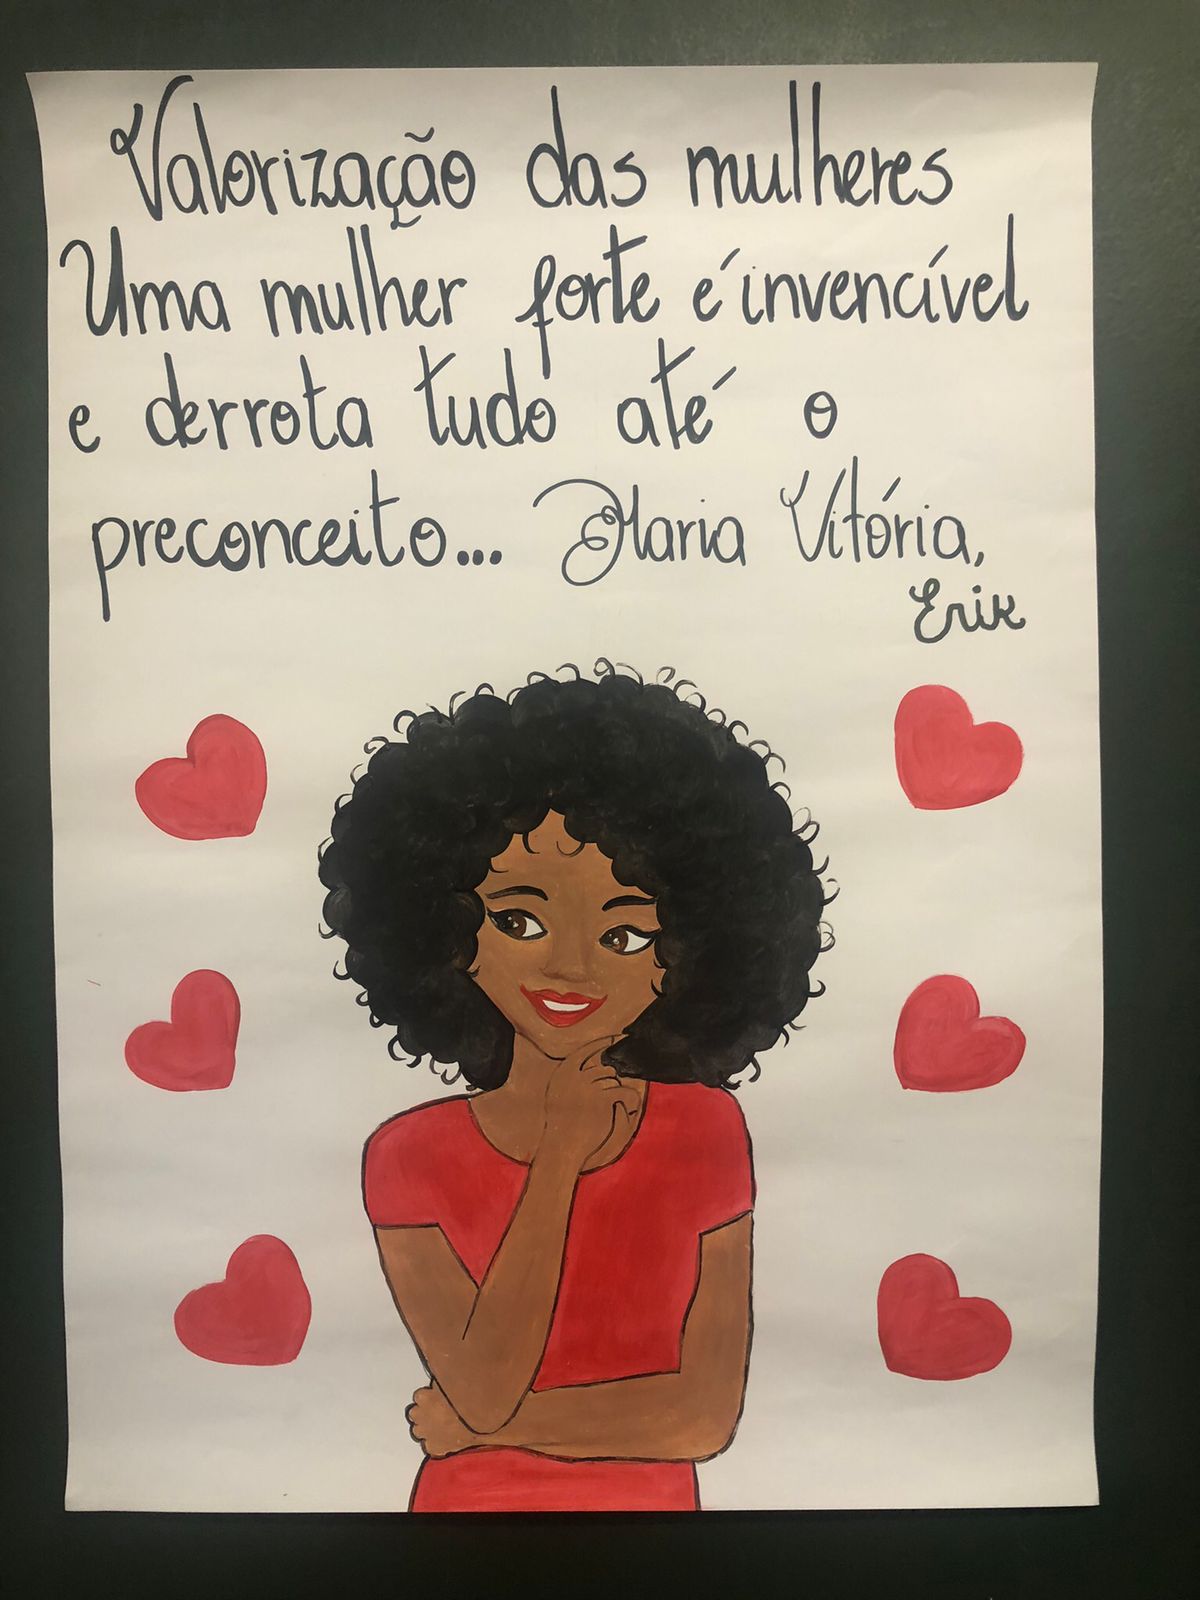 Valorização das mulheres
Uma mulher forte é invencível
e derrota tudo até o
preconceito... Maria Vitória,
Erik